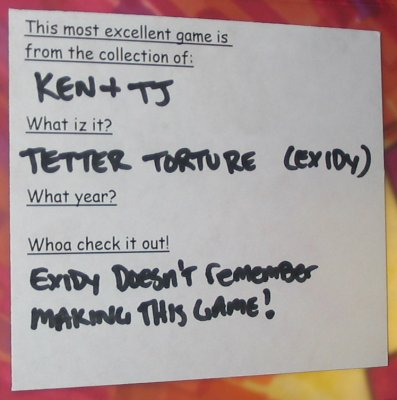 This most excellent game is
from the collection of:
KEN + TJ
What iz it?
TETTER TORTURE (EXIDY)
What year?
Whoa check it out!
EXIDY DOESN'T remember
MAKING THIS GAME!